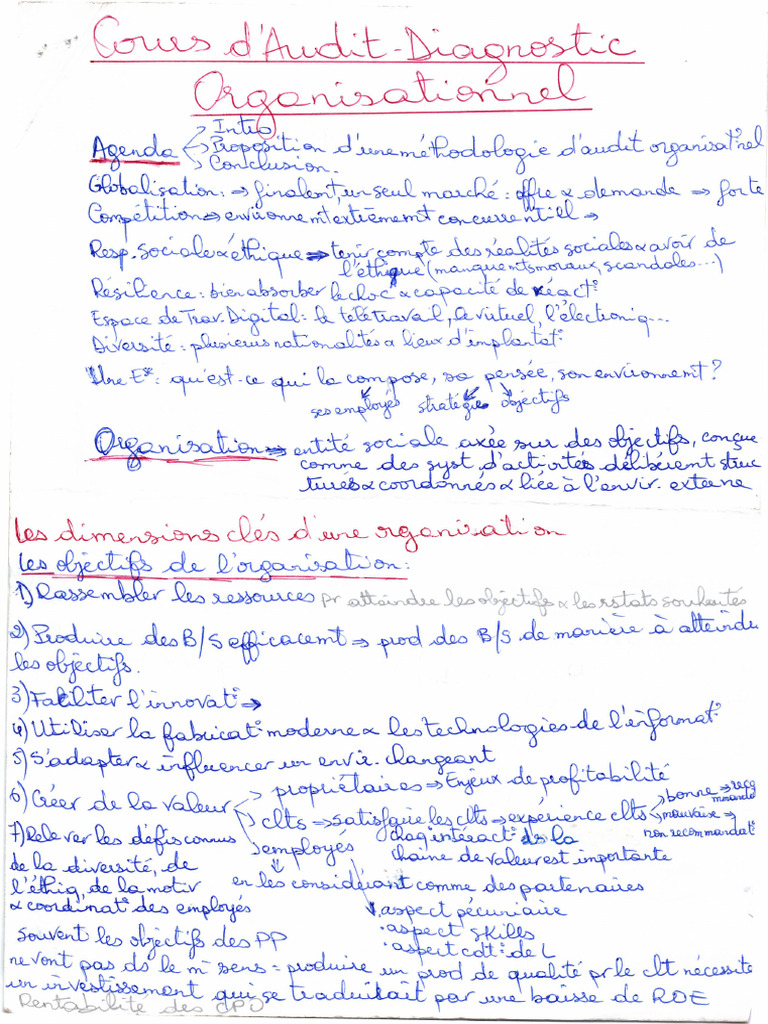 Cours d'Audit-Diagnostic
Organisationnel
Agenda → Intro
→ Proposition d'une méthodologie d'audit organisat° nel
→ Conclusion.
Globalisation: ⇒ finalent, un seul marché: offre & demande ⇒ forte
Compétition ⇒ environnemt extrêmemt concurrentiell ⇒
Resp. sociale & éthique ⇒ tenir compte des réalités sociales & avoir de
l'éthique (manquents moraux, scandales...)
Résilience: bien absorber le choc & capacité de réact°
Espace de Trav. Digital: le télétravail, le virtuel, l'électroniq...
Diversité: plusieurs nationalités & lieux d'implantat°
Une Ese: qu'est-ce qui la compose, sa pensée, son environnemt?
ses employés stratégie objectifs
Organisation ⇒ entité sociale axée sur des objectifs, conçue
comme des syst d'activités délibérent struc
turés & coordonnés & liée à l'envir. externe
Les dimensions clés d'une organisation
Les objectifs de l'organisation:
1) Rassembler les ressources pr atteindre les objectifs & les rstats souhaités
2) Produire des B/S efficacemt ⇒ prod des B/S de manière à atteindre
les objectifs.
3) Faciliter l'innovat° ⇒
4) Utiliser la fabricat° moderne & les technologies de l'informat°
5) S'adapter & influencer un envir. changeant
6) Créer de la valeur → propriétaires ⇒ Enjeux de profitabilité
→ clts ⇒ satisfaire les clts ⇒ expérience clts → bonne ⇒ recommandé
→ mauvaise ⇒ non recommandat°
chaq intéract° ds la
chaîne de valeur est importante
→ employés
en les considérant comme des partenaires
· aspect pécuniaire
· aspect skills
· aspect cdt° de L
7) Relever les défis connus
de la diversité, de
l'éthiq, de la motiv
& coordinat° des employés
Souvent les objectifs des PP
ne vont pas ds le m̂ sens = produire un prod de qualité pr le clt nécessite
un investissement qui se traduirait par une baisse de ROE
Rentabilité des CPO